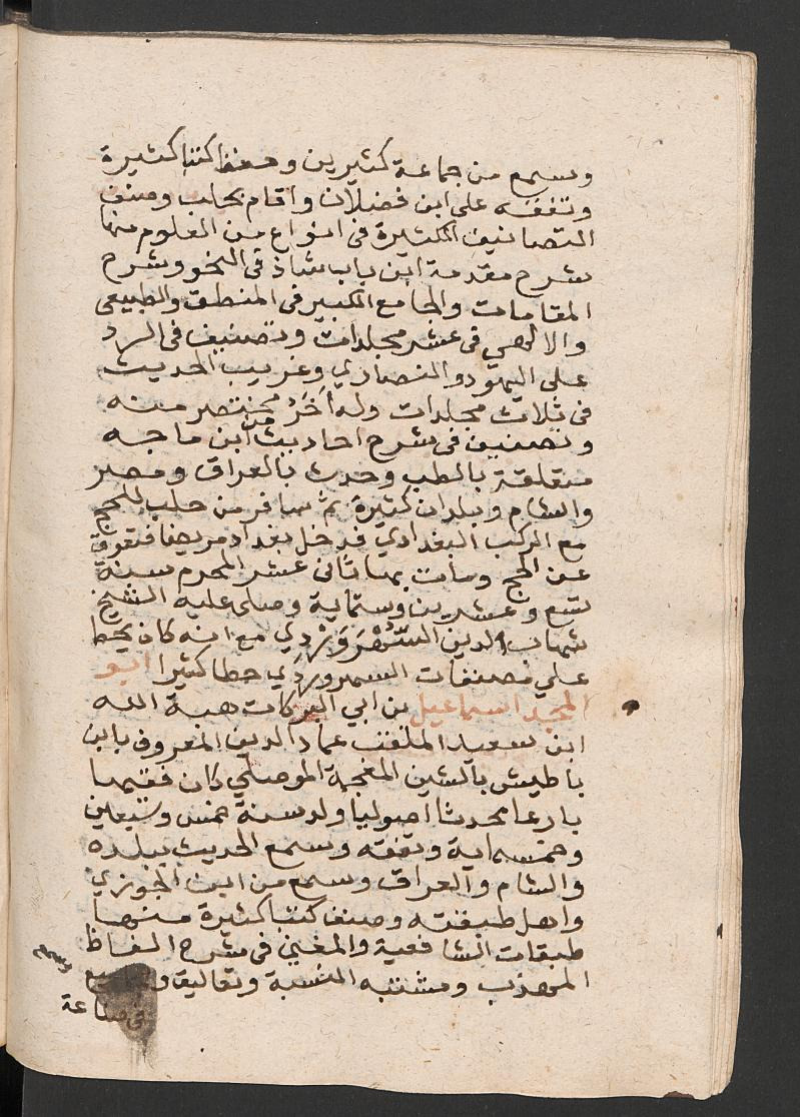 وسمع من جماعة كثيرين وصنف كتبا كثيرة
وتفقه على ابن فضلان واقام بحلب وصنف
التصانيف الكثيرة في انواع من العلوم منها
شرح مقدمة ابن باب شاذ في النحو وشرح
المقامات والجامع الكبير في المنطق والطبيعي
والالهي في عشر مجلدات وتصنيف في الرد
على اليهود والنصاري وغريب الحديث
في ثلاث مجلدات وله اٰخَرُ مختصر منه
وتصنيف في شرح احاديث من ابن ماجه
متعلقة بالطب وحدث بالعراق ومصر
والشام وبلدان كثيرة ثم سافر من حلب للحج
مع الركب البغدادي فدخل بغداد مريضا فتعوق
عن الحج ومات بها ثاني عشر المحرم سنة
تسع وعشرين وستماية وصلى عليه الشيخ
شهاب الدين السُّهْرَوَرْدِي مع انه كان يحط
على مصنفات السهروردي حطا كثيرا ابو
المجد اسماعيل بن ابي البركات هبة الله
ابن سعيد الملقب عماد الدين المعروف بابن
باطيش بالشين المعجمة الموصلي كان فقيها
بارعا محدثا اصوليا ولد سنة خمس وسبعين
وخمسماية وتفقه وسمع الحديث ببلده
والشام والعراق وسمع من ابن الجوزي
واهل طبقته وصنف كتبا كثيرة منها
طبقات الشافعية والمغني في شرح الفاظ
المهذب ومشتبه النسبة وتعاليق
في صناعة